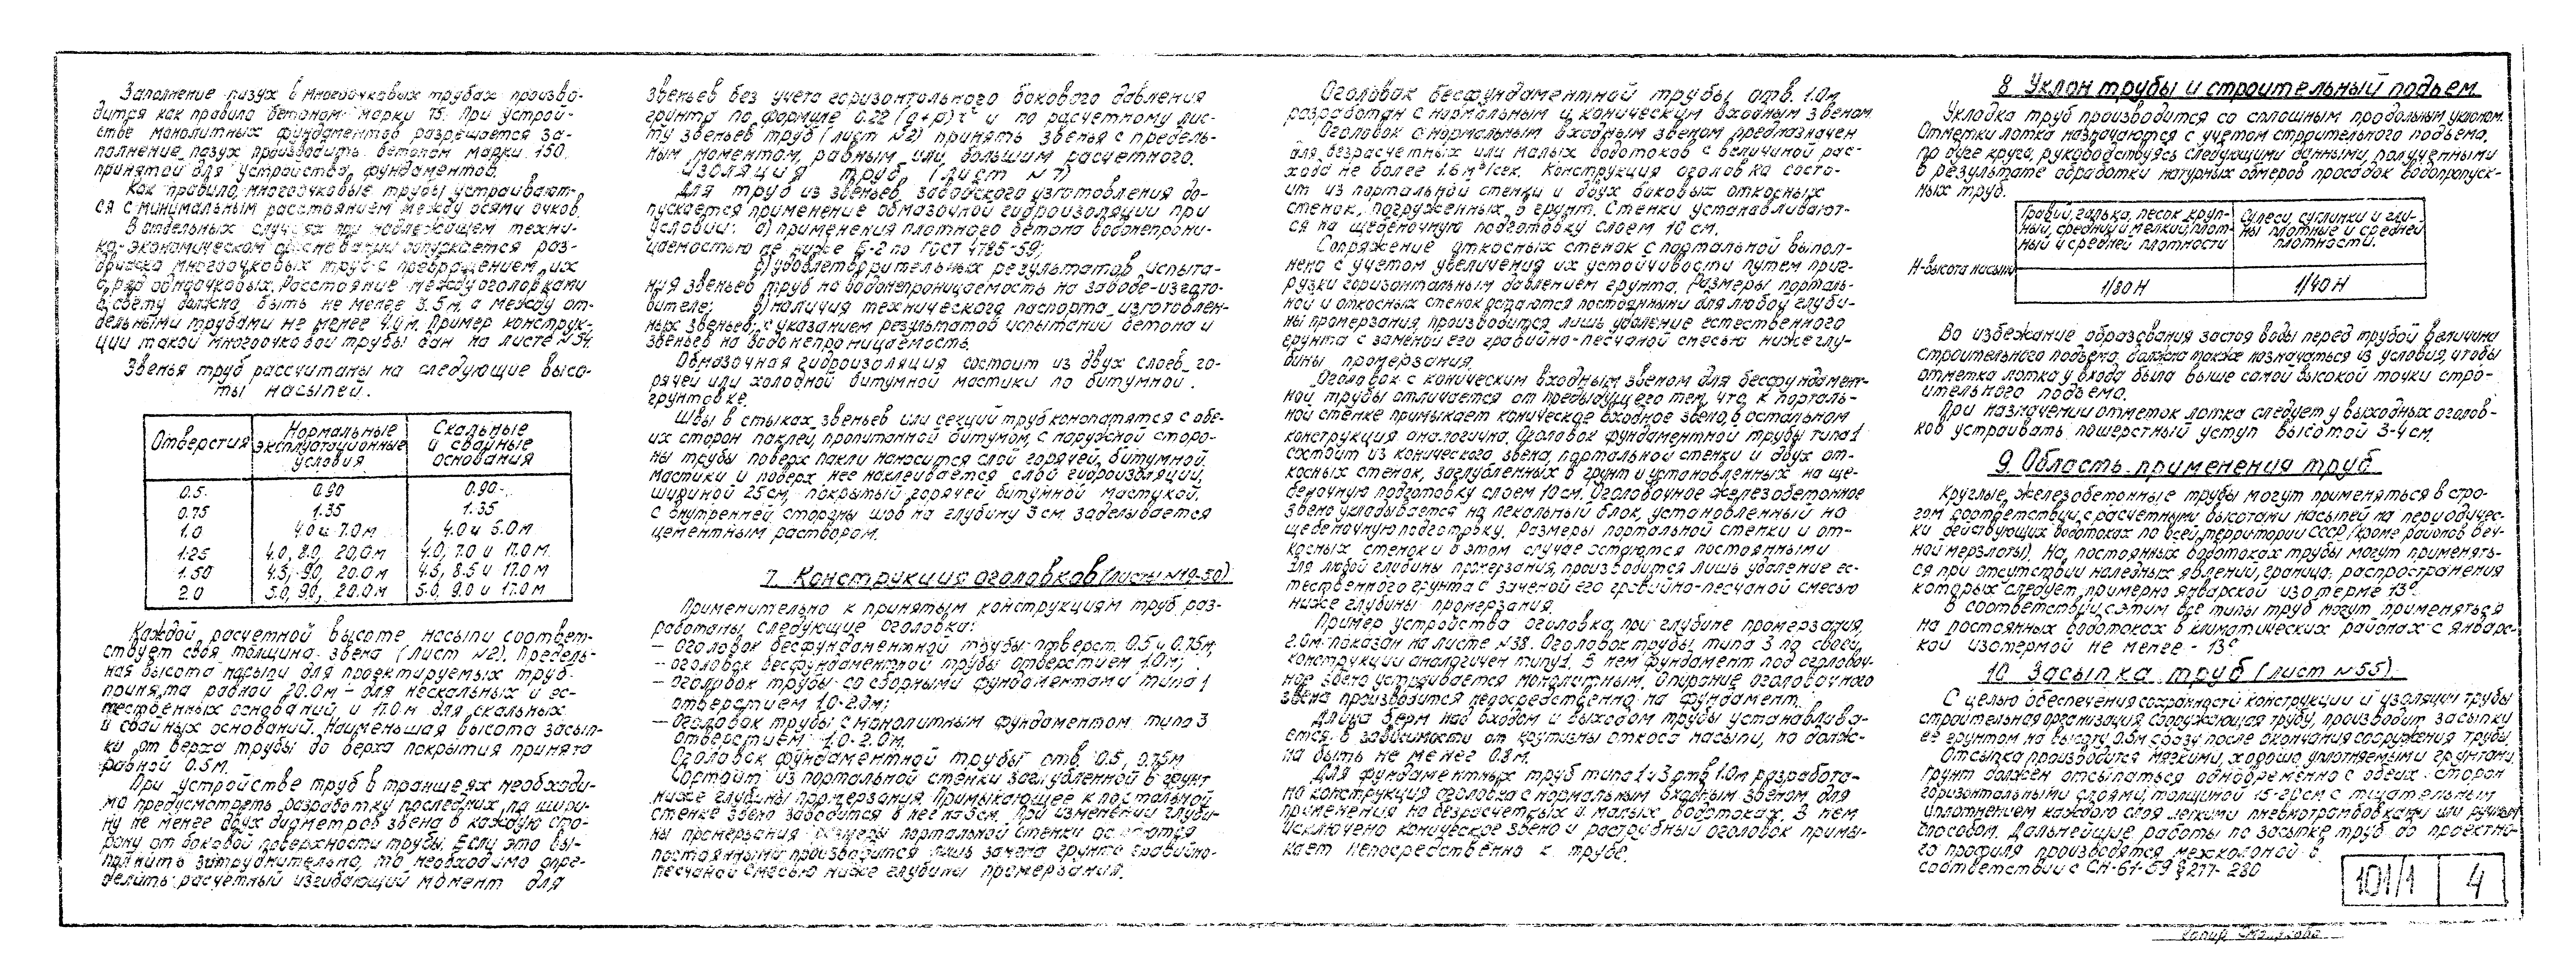 Заполнение пазух в многоочковых трубах произво-
дится как правило бетоном марки 75. При устрой-
стве монолитных фундаментов разрешается за-
полнение пазух производить бетоном марки 150,
принятой для устройства фундаментов.
Как правило, многоочковые трубы устраивают-
ся с минимальным расстоянием между осями очков.
В отдельных случаях при надлежащем техни-
ко-экономическом допускается раз-
бивка многоочковых труб с превращением их
в ряд одноочковых. Расстояние между оголовками
в свету должно быть не менее 3.5м, а между от-
дельными трубами не менее 4.0м. Пример конструк-
ции такой многоочковой трубы дан на листе №54
Звенья труб рассчитаны на следующие высо-
ты насыпей.
Отверстия | Нормальные эксплуатационные условия | Скальные и свайные основания
0.5 | 0.90 | 0.90
0.75 | 1.35 | 1.35
1.0 | 4.0 и 7.0 м | 4.0 и 6.0 м
1.25 | 4.0, 8.0, 20.0 м | 4.0, 7.0 и 17.0 м
1.50 | 4.5, 9.0, 20.0 м | 4.5, 8.5 и 17.0 м
2.0 | 5.0, 9.0, 20.0 м | 5.0, 9.0 и 17.0 м
Каждой расчетной высоте насыпи соответ-
ствует своя толщина звена (лист №2). Предель-
ная высота насыпи для проектируемых труб
принята равной 20.0м – для нескальных и ес-
тественных оснований, и 17.0 м для скальных
и свайных оснований. Наименьшая высота засып-
ки от верха трубы до верха покрытия принята
равной 0.5м.
При устройстве труб в траншеях необходи-
мо предусмотреть разработку последних на шири-
ну не менее двух диаметров звена в каждую сто-
рону от боковой поверхности трубы. Если это вы-
полнить затруднительно, то необходимо опре-
делить расчетный изгибающий момент для
звеньев без учета горизонтального бокового давления
грунта по формуле 0.22 (q+p) r² и по расчетному лис-
ту звеньев труб (лист №2) принять звенья с предель-
ным моментом, равным или большим расчетного.
Изоляция труб (лист №7)
Для труб из звеньев заводского изготовления до-
пускается применение обмазочной гидроизоляции при
условии: а) применения плотного бетона водонепрони-
цаемостью не ниже Б-2 по ГОСТ 4785-59;
б) удовлетворительных результатов испыта-
ния звеньев труб на водонепроницаемость на заводе-изгото-
вителе; в) наличия технического паспорта изготовлен-
ных звеньев, с указанием результатов испытаний бетона и
звеньев на водонепроницаемость.
Обмазочная гидроизоляция состоит из двух слоев го-
рячей или холодной битумной мастики по битумной
грунтовке.
Швы в стыках звеньев или секций труб конопатятся с обе-
их сторон паклей, пропитанной битумом, с наружной сторо-
ны трубы поверх пакли наносится слой горячей битумной
мастики и поверх нее наклеивается слой гидроизоляции,
шириной 25см, покрытый горячей битумной мастикой.
С внутренней стороны шов на глубину 3 см. заделывается
цементным раствором.
7. Конструкция оголовков (листы №19-50)
Применительно к принятым конструкциям труб раз-
работаны следующие оголовки:
– оголовок бесфундаментной трубы отверст. 0.5 и 0.75м;
– оголовок бесфундаментной трубы отверстием 1.0м;
– оголовок трубы со сборными фундаментами типа 1
отверстием 1.0-2.0м;
– оголовок трубы с монолитным фундаментом типа 3
отверстием 1.0-2.0м.
Оголовок фундаментной трубы отв. 0.5, 0.75м
состоит из портальной стенки заглубленной в грунт
ниже глубины промерзания. Примыкающее к портальной
стенке звено заводится в нее на 3см. При изменении глуби-
ны промерзания размеры портальной стенки остаются
постоянными производится лишь замена грунта гравийно-
песчаной смесью ниже глубины промерзания.
Оголовок бесфундаментной трубы отв. 1.0м
разработан с нормальным и коническим входным звеном.
Оголовок с нормальным входным звеном предназначен
для безрасчетных или малых водотоков с величиной рас-
хода не более 1.6 м³/сек. Конструкция оголовка состо-
ит из портальной стенки и двух боковых откосных
стенок, погруженных в грунт. Стенки устанавливают-
ся на щебеночную подготовку слоем 10 см.
Сопряжение откосных стенок с портальной выпол-
нено с учетом увеличения их устойчивости путем приг-
рузки горизонтальным давлением грунта. Размеры порталь-
ной и откосных стенок остаются постоянными для любой глуби-
ны промерзания, производится лишь удаление естественного
грунта с заменой его гравийно-песчаной смесью ниже глу-
бины промерзания.
Оголовок с коническим входным звеном для бесфундамент-
ной трубы отличается от предыдущего тем, что к порталь-
ной стенке примыкает коническое входное звено, в остальном
конструкция аналогична. Оголовок фундаментной трубы типа 1
состоит из конического звена, портальной стенки и двух от-
косных стенок, заглубленных в грунт и установленных на ще-
беночную подготовку слоем 10см. Оголовочное железобетонное
звено укладывается на лекальный блок, установленный на
щебеночную подготовку. Размеры портальной стенки и от-
косных стенок и в этом случае остаются постоянными
для любой глубины промерзания, производится лишь удаление ес-
тественного грунта с заменой его гравийно-песчаной смесью
ниже глубины промерзания.
Пример устройства оголовка, при глубине промерзания,
2.0м. показан на листе №38. Оголовок трубы типа 3 по своей
конструкции аналогичен типу 1. В нем фундамент под оголовоч-
ное звено устраивается монолитным. Опирание оголовочного
звена производится непосредственно на фундамент.
Длина берм над входом и выходом трубы устанавлива-
ется в зависимости от крутизны откоса насыпи, но долж-
на быть не менее 0.8м.
Для фундаментных труб типа 1 и 3 отв. 1.0м разработа-
на конструкция оголовка с нормальным входным звеном для
применения на безрасчетных и малых водотоках. В нем
исключено коническое звено и раструбный оголовок примы-
кает непосредственно к трубе.
8 Уклон трубы и строительный подъем
Укладка труб производится со сплошным продольным уклоном.
Отметки лотка назначаются с учетом строительного подъема,
по дуге круга, руководствуясь следующими данными, полученными
в результате обработки натурных обмеров просадок водопропуск-
ных труб.
Гравий, галька, песок круп-
ный, средний и мелкий, плот-
ный и средней плотности | Супеси, суглинки и гли-
ны плотные и средней
плотности.
H-высота насыпи | 1/80 Н | 1/40 Н
Во избежание образования застоя воды перед трубой величина
строительного подъема должна также назначаться из условия, чтобы
отметка лотка у входа была выше самой высокой точки стро-
ительного подъема.
При назначении отметок лотка следует у выходных оголов-
ков устраивать пошерстный уступ высотой 3-4 см.
9 Область применения труб
Круглые железобетонные трубы могут применяться в стро-
гом соответствии с расчетными высотами насыпей на периодичес-
ки действующих водотоках по всей территории СССР (кроме районов веч-
ной мерзлоты). На постоянных водотоках трубы могут применять-
ся при отсутствии наледных явлений, граница распространения
которых следует примерно январской изотерме 13°.
В соответствии с этим все типы труб могут применяться
на постоянных водотоках в климатических районах с январс-
кой изотермой не менее - 13°
10 Засыпка труб (лист №55)
С целью обеспечения сохранности конструкции и изоляции трубы
строительная организация сооружающая трубу, производит засыпку
ее грунтом на высоту 0.5м сразу после окончания сооружения трубы.
Отсыпка производится мягкими, хорошо уплотняемыми грунтами.
Грунт должен отсыпаться одновременно с обеих сторон
горизонтальными слоями, толщиной 15-20см с тщательным
уплотнением каждого слоя легкими пневмотрамбовками или ручным
способом. Дальнейшие работы по засыпке труб до проектно-
го профиля производятся мехколонной в
соответствии с СН-61-59 § 277-280
101/1 | 4
Копир.